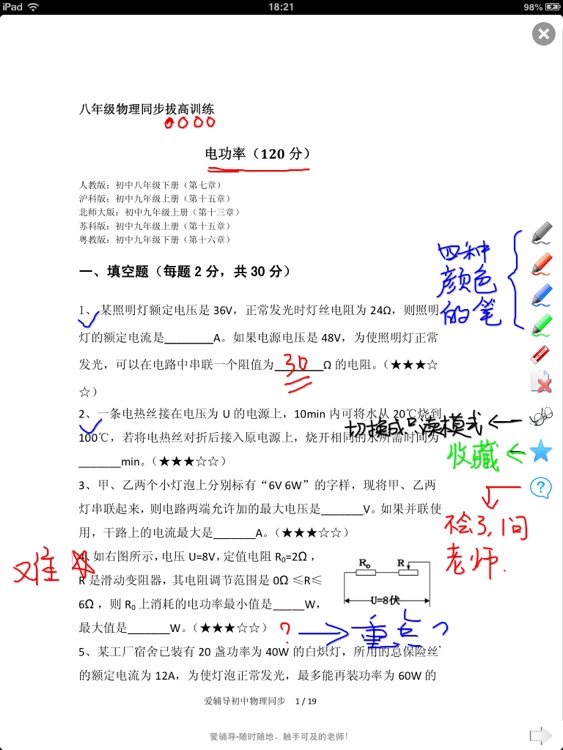 iPad 18:21 98%
八年级物理同步拔高训练
电功率（120 分）
人教版：初中八年级下册（第七章）
沪科版：初中九年级上册（第十五章）
北师大版：初中九年级上册（第十三章）
苏科版：初中九年级下册（第十五章）
粤教版：初中九年级下册（第十六章）
四种
颜色
的笔
一、填空题（每题 2 分，共 30 分）
1、某照明灯额定电压是 36V，正常发光时灯丝电阻为 24Ω，则照明
灯的额定电流是________A。如果电源电压是 48V，为使照明灯正常
发光，可以在电路中串联一个阻值为 30 Ω 的电阻。（★★★☆
☆）
2、一条电热丝接在电压为 U 的电源上，10min 内可将水从 20℃烧到
切换成只读模式
100℃，若将电热丝对折后接入原电源上，烧开相同的水所需时间为
收藏
_______min。（★★★☆☆）
3、甲、乙两个小灯泡上分别标有“6V 6W”的字样，现将甲、乙两
灯串联起来，则电路两端允许加的最大电压是_______V。如果并联使
用，干路上的电流最大是_______A。（★★★☆☆）
不会了,问
老师.
难
4、如右图所示，电压 U=8V，定值电阻 R0=2Ω ，
R 是滑动变阻器，其电阻调节范围是 0Ω ≤R≤
6Ω ，则 R0 上消耗的电功率最小值是_____W，
最大值是_______W。（★★★☆☆）
R0 R
U=8伏
? 重点?
5、某工厂宿舍已装有 20 盏功率为 40W 的白炽灯，所用的总保险丝
的额定电流为 12A，为使灯泡正常发光，最多能再装功率为 60W 的
爱辅导初中物理同步 1 / 19
爱辅导-随时随地、触手可及的老师!